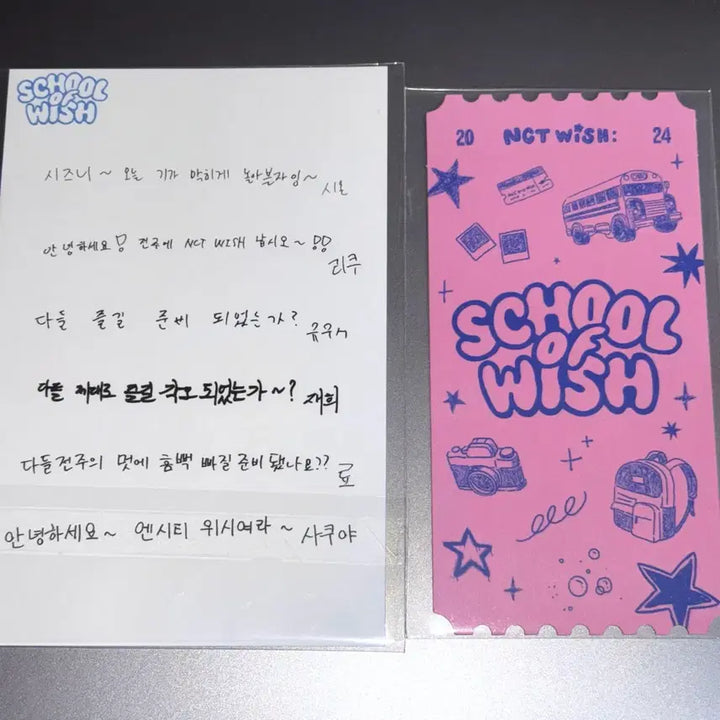 SCHOOL
OF
WISH
시즈니~ 오늘 기가 막히게 놀아본자잉~ 시온
안녕하세요 전주에 NCT WISH 납시오~ 리쿠
다들 즐길 준비 되었는가? 유우시
다들 제대로 즐길 각오 되었는가~? 재희
다들 전주의 멋에 흠뻑 빠질 준비 됐나요?? 료
안녕하세요~ 엔시티 위시여라~ 사쿠야
20 NCT WISH: 24
SCHOOL
OF
WISH